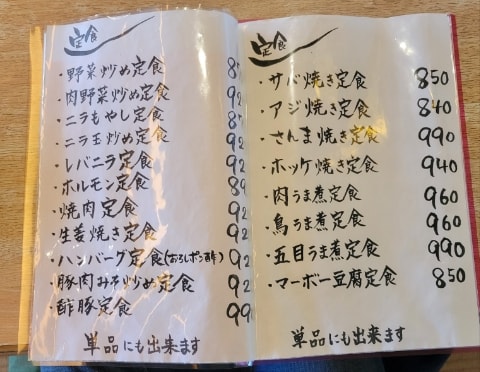 定食
・野菜炒め定食 8
・肉野菜炒め定食 92
・ニラもやし定食 8
・ニラ玉炒め定食 92
・レバニラ定食 92
・ホルモン定食 89
・焼肉定食 92
・生姜焼き定食 92
・ハンバーグ定食(おろしポン酢) 92
・豚肉みそ炒め定食 92
・酢豚定食 99
単品にも出来ます
定食
・サバ焼き定食 850
・アジ焼き定食 840
・さんま焼き定食 990
・ホッケ焼き定食 940
・肉うま煮定食 960
・鳥うま煮定食 960
・五目うま煮定食 990
・マーボー豆腐定食 850
単品にも出来ます